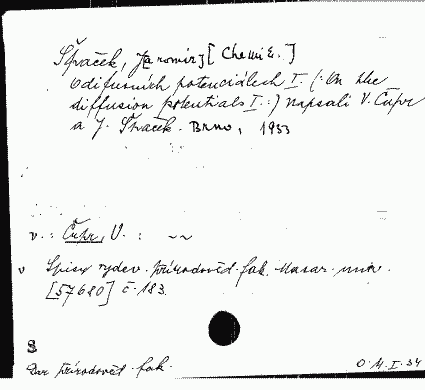 Špaček, Jaromír [Chemie.]
O difusních potenciálech I. (: On the
diffusion potentials I. :) napsali V. Čupr
a J. Špaček. Brno, 1933
v. : Čupr, V. : ~~
v Spisy vydav. přírodověd. fak. Masar. univ.
[57680] č. 183.
8
Dar přírodověd. fak.
O. M. I. 34